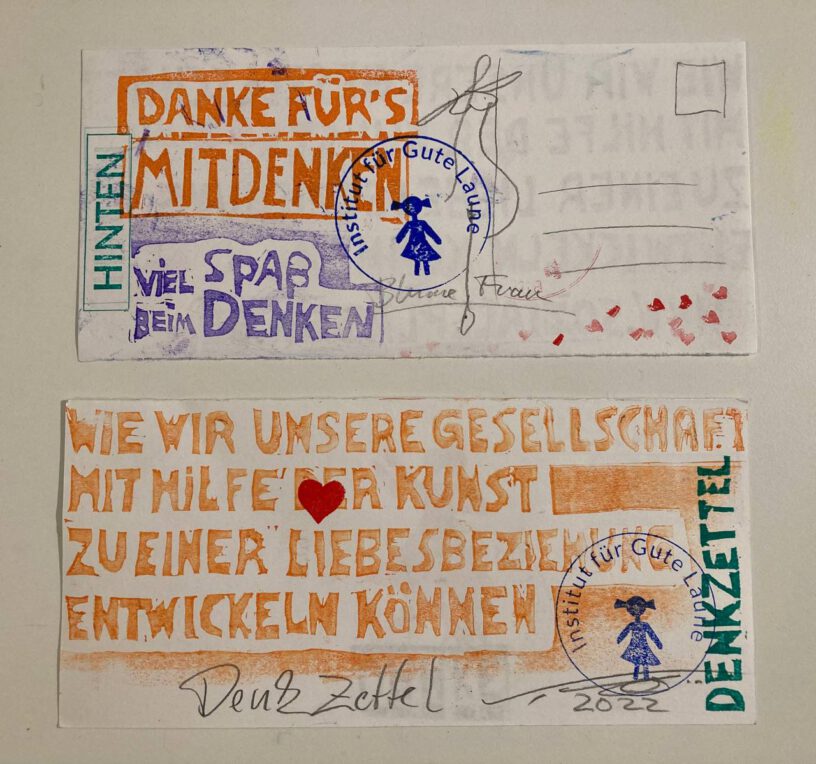 DANKE FÜR'S
MITDENKEN
HINTEN
VIEL SPAß
BEIM DENKEN
Institut für Gute Laune
Blume Frau
WIE WIR UNSERE GESELLSCHAFT
MIT HILFE DER KUNST
ZU EINER LIEBESBEZIEHUNG
ENTWICKELN KÖNNEN
DENKZETTEL
Institut für Gute Laune
Denk Zettel
2022